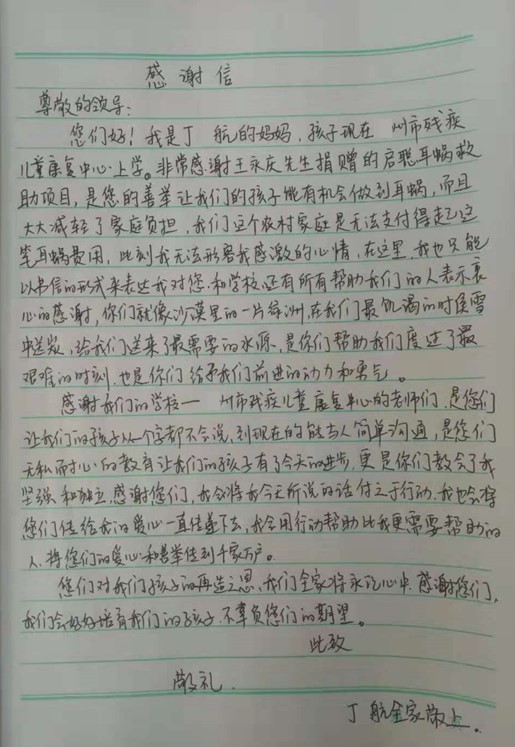 感谢信
尊敬的领导：
您们好！我是丁 航的妈妈，孩子现在 州市残疾
儿童康复中心上学。非常感谢王永庆先生捐赠的启聪耳蜗救
助项目，是您的善举让我们的孩子能有机会做到耳蜗，而且
大大减轻了家庭负担，我们这个农村家庭是无法支付得起这
笔耳蜗费用，此刻我无法形容我感激的心情，在这里，我也只能
以书信的形式来表达我对您，和学校还有所有帮助我们的人表示衷
心的感谢，你们就像沙漠里的一片绿洲，在我们最饥渴的时侯雪
中送炭，给我们送来了最需要的水源，是你们帮助我们度过了最
艰难的时刻，也是你们给予我们前进的动力和勇气。
感谢我们的学校— 州市残疾儿童康复中心的老师们，是您们
让我们的孩子从一个字都不会说，到现在的能与人简单沟通，是您们
无私而耐心的教育让我们的孩子有了今天的进步，更是你们教会了我
坚强和独立，感谢您们，我会将我今天所说的话付之于行动，我也会将
您们传给我的爱心一直传递下去，我会用行动帮助比我更需要帮助的
人，将您们的爱心和善举传到千家万户。
您们对我们孩子的再造之恩，我们全家将永记心中，感谢您们，
我们会好好培育我们的孩子，不辜负您们的期望。
此致
敬礼．
丁 航全家敬上．